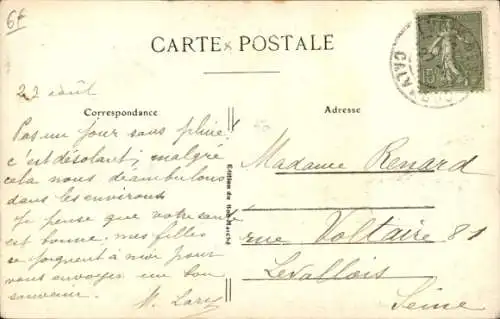 6f
CARTE POSTALE
22 août
Correspondance
Adresse
15
CALVADOS
Pas un jour sans pluie
c'est désolant; malgré
cela nous déambulons
dans les environs
Je pense que votre santé
est bonne. mes filles
se joignent à moi pour
vous envoyer un bon
souvenir.
Edition du Bon Marché
Madame Renard
rue Voltaire 81
Levallois
Seine